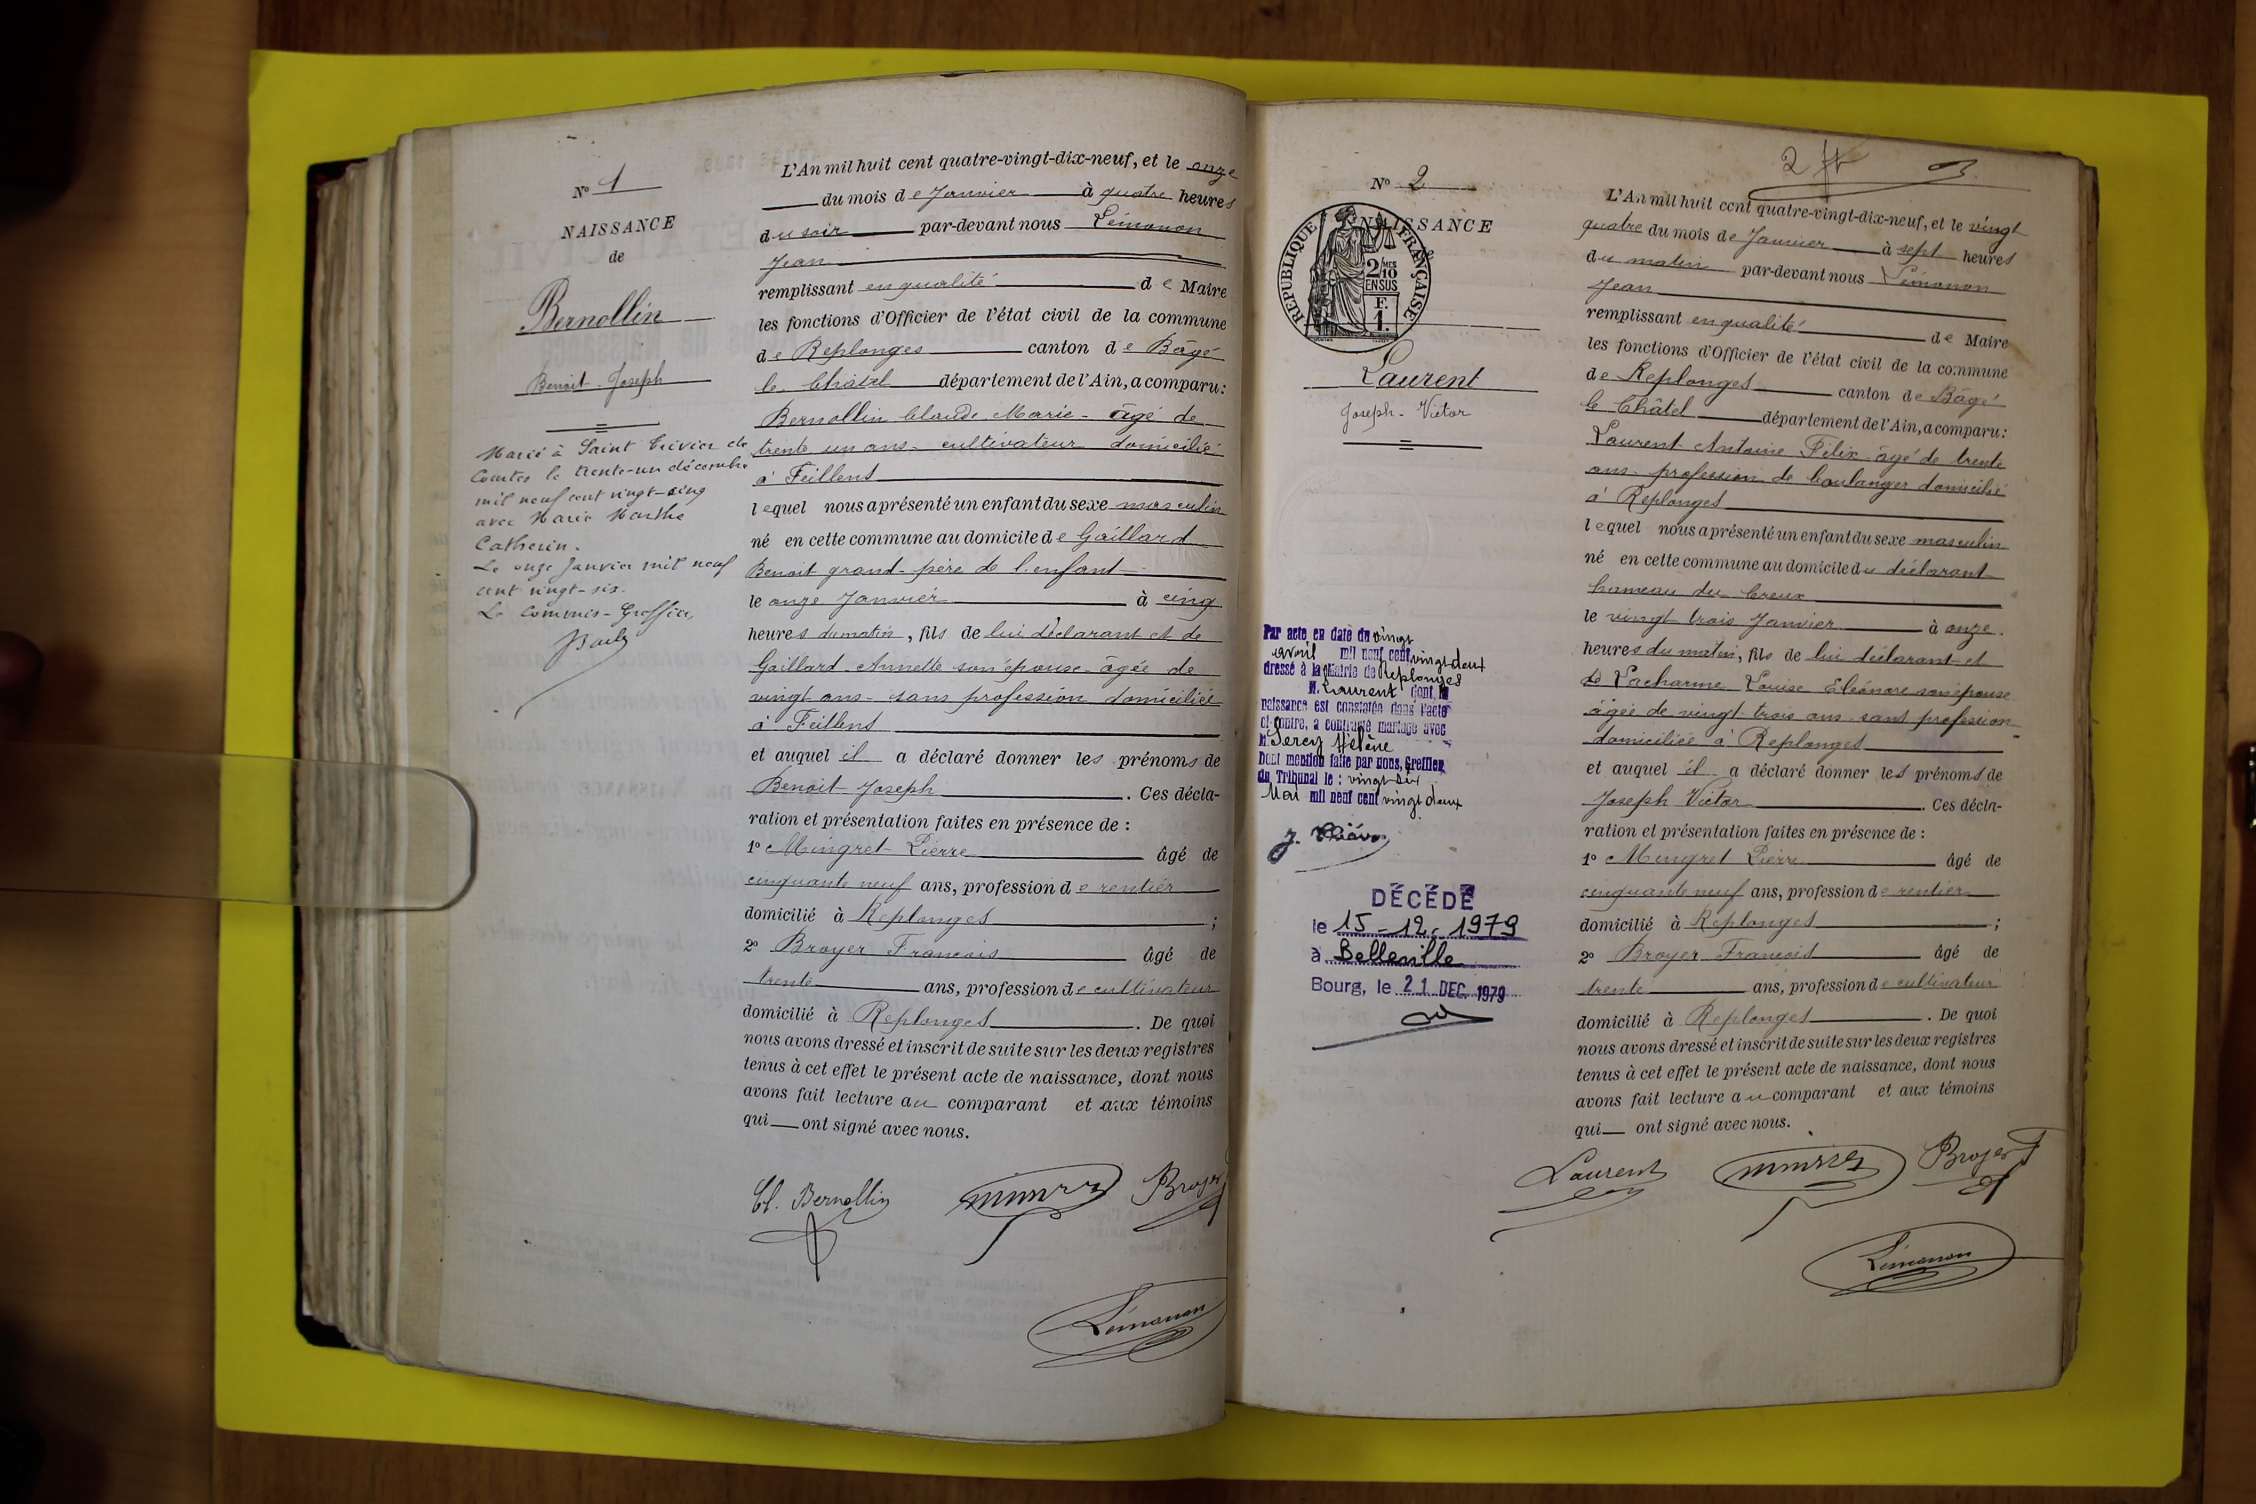 N° 1
NAISSANCE
de
Bernollin
Benoit-Joseph
Marié à Saint Trivier de
Courtes le trente-un décembre
mil neuf cent vingt-cinq
avec Marie Marthe
Catherin.
Le onze Janvier mil neuf
cent vingt-six.
Le Commis-Greffier,
L'An mil huit cent quatre-vingt-dix-neuf, et le onze
du mois de Janvier à quatre heures
du soir par-devant nous Lémonon
Jean
remplissant en qualité de Maire
les fonctions d'Officier de l'état civil de la commune
de Replonges canton de Bâgé
le Châtel département de l'Ain, a comparu:
Bernollin Claude Marie - âgé de
trente un ans - cultivateur domicilié
à Feillens
lequel nous a présenté un enfant du sexe masculin
né en cette commune au domicile de Gaillard
Benoit grand-père de l'enfant
le onze Janvier à cinq
heures du matin, fils de lui déclarant et de
Gaillard Annette son épouse - âgée de
vingt ans - sans profession domiciliée
à Feillens
et auquel il a déclaré donner les prénoms de
Benoit Joseph. Ces décla-
ration et présentation faites en présence de :
1° Mingret Pierre âgé de
cinquante neuf ans, profession de rentier
domicilié à Replonges ;
2° Broyer François âgé de
trente ans, profession de cultivateur
domicilié à Replonges. De quoi
nous avons dressé et inscrit de suite sur les deux registres
tenus à cet effet le présent acte de naissance, dont nous
avons fait lecture au comparant et aux témoins
qui ont signé avec nous.
Cl. Bernollin Broyer
Lémonon
2
N° 2
NAISSANCE
RÉPUBLIQUE FRANÇAISE
2/10 MES
EN SUS
F.
1.
Laurent
Joseph-Victor
Par acte en date du vingt
avril mil neuf cent vingt-deux
dressé à la Mairie de Replonges
M. Laurent dont la
naissance est constatée dans l'acte
ci-contre, a contracté mariage avec
M. Hélène
Dont mention faite par nous, Greffier
du Tribunal le : vingt-six
Mai mil neuf cent vingt deux
DÉCÉDÉ
le 15-12-1979
à Belleville
Bourg, le 21 DEC. 1979
L'An mil huit cent quatre-vingt-dix-neuf, et le vingt
quatre du mois de Janvier à sept heures
du matin par-devant nous Lémonon
Jean
remplissant en qualité de Maire
les fonctions d'Officier de l'état civil de la commune
de Replonges canton de Bâgé
le Châtel département de l'Ain, a comparu:
Laurent Antoine Félix - âgé de trente
ans - profession de boulanger domicilié
à Replonges
lequel nous a présenté un enfant du sexe masculin
né en cette commune au domicile du déclarant
hameau du Creux
le vingt trois Janvier à onze
heures du matin, fils de lui déclarant et
de Lacharme Louise Eléonore son épouse
âgée de vingt trois ans sans profession
domiciliée à Replonges
et auquel il a déclaré donner les prénoms de
Joseph Victor. Ces décla-
ration et présentation faites en présence de :
1° Mingret Pierre âgé de
cinquante neuf ans, profession de rentier
domicilié à Replonges ;
2° Broyer François âgé de
trente ans, profession de cultivateur
domicilié à Replonges. De quoi
nous avons dressé et inscrit de suite sur les deux registres
tenus à cet effet le présent acte de naissance, dont nous
avons fait lecture au comparant et aux témoins
qui ont signé avec nous.
Laurent Broyer F
Lémonon